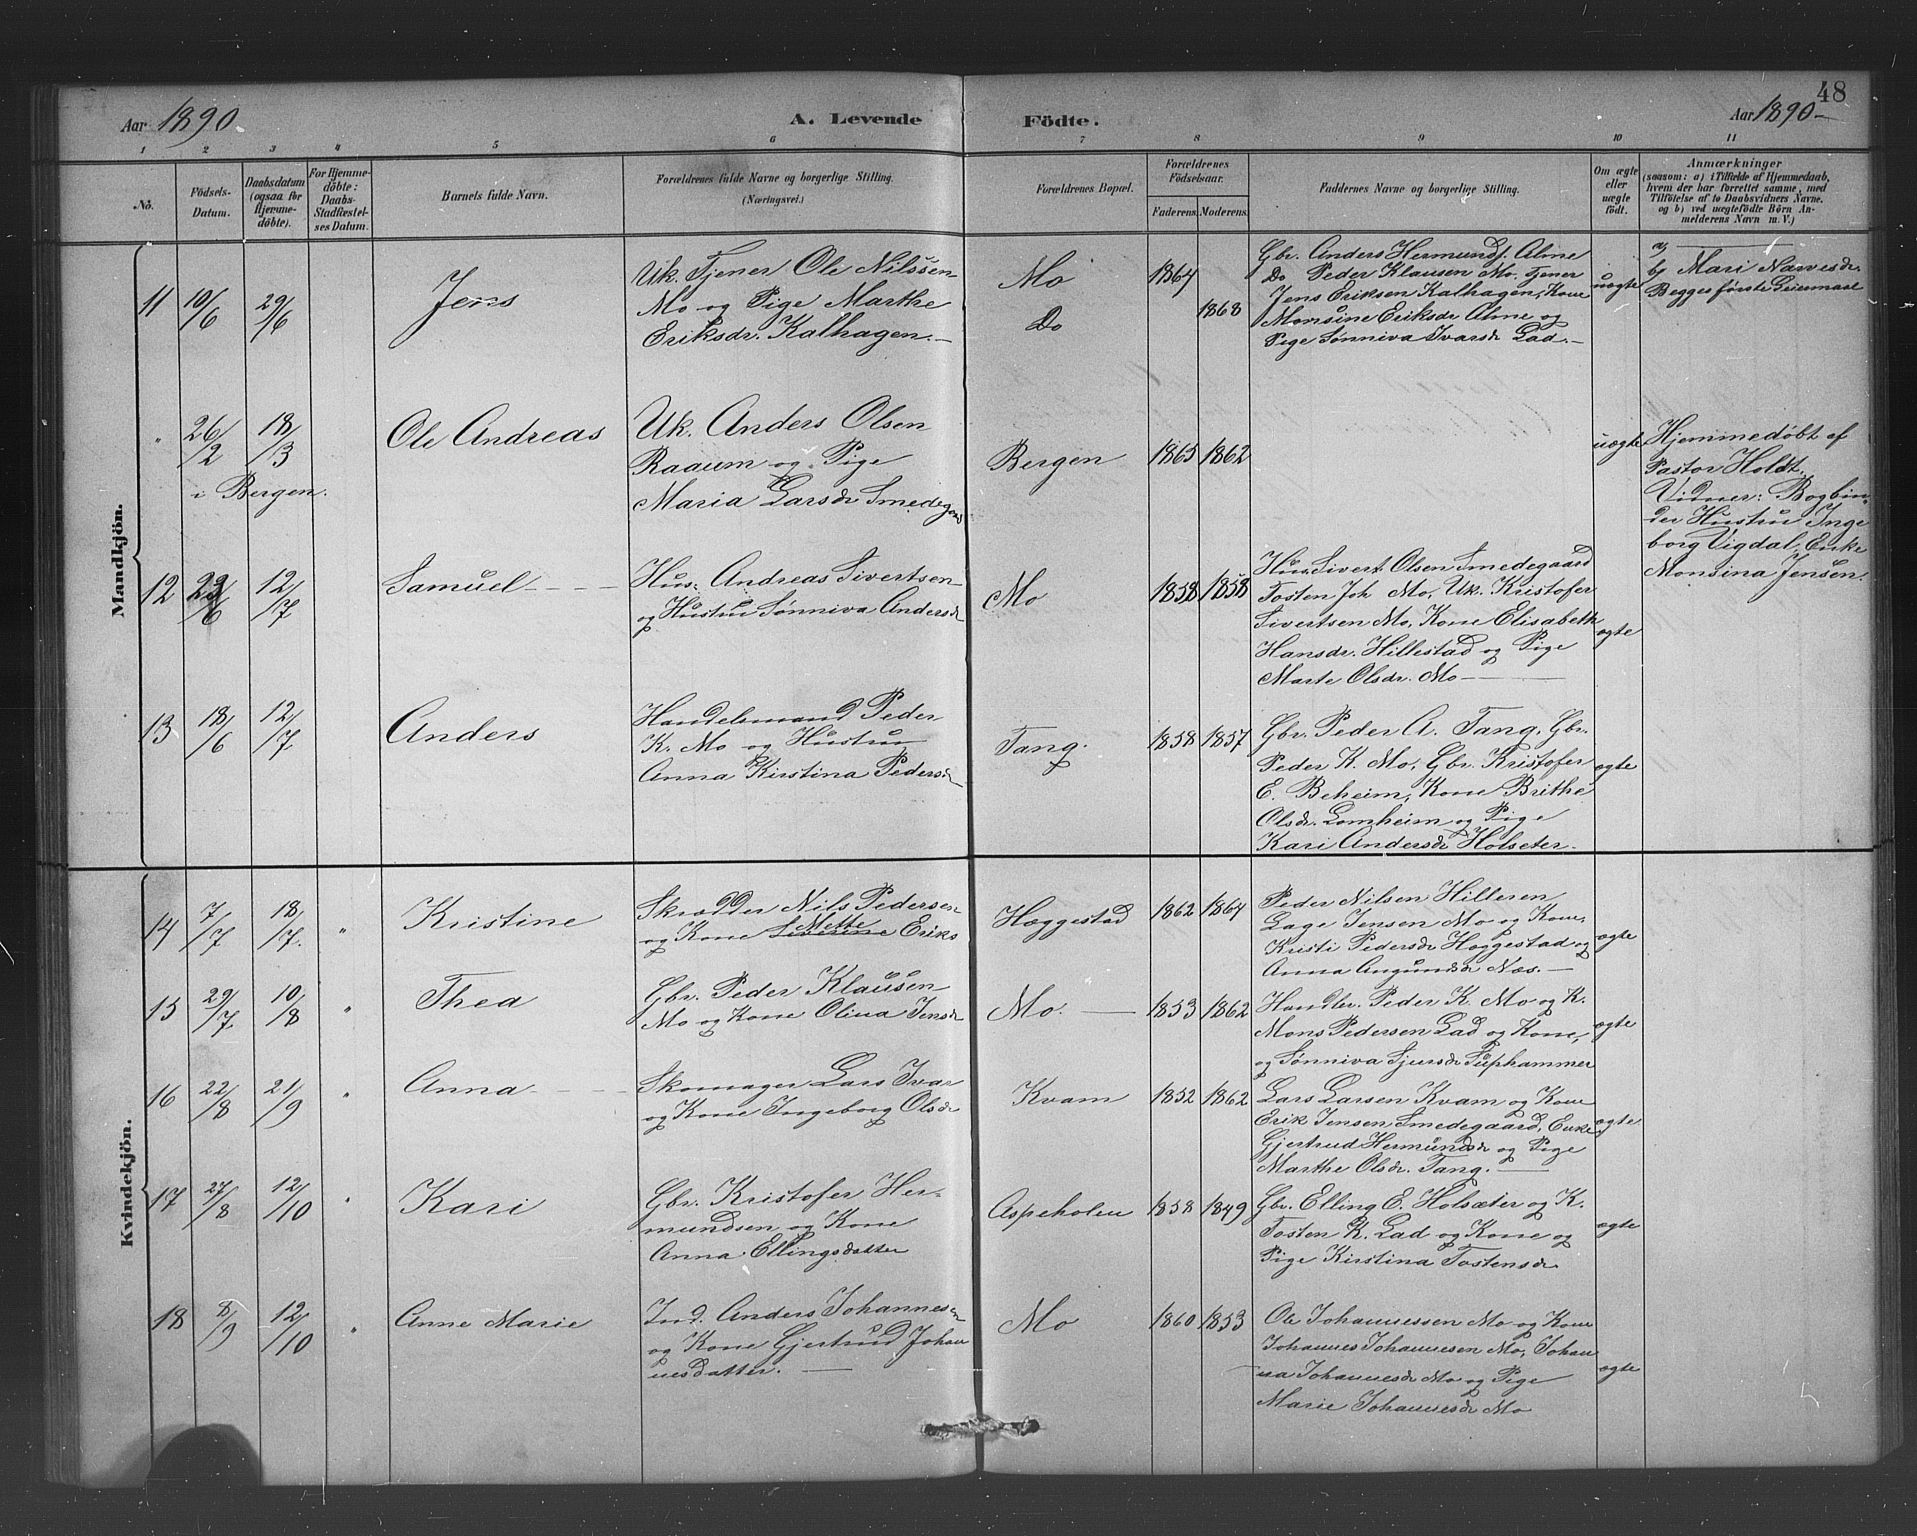 48
Aar 1890.
A. Levende
Födte.
Aar 1890 -
1 2 3 4 5 6 7 8 9 10 11
No.
Födsels-
Datum.
Daabsdatum
(ogsaa for
Hjemme-
döbte).
For Hjemme-
döbte:
Daabs-
Stadfæstel-
ses Datum.
Barnets fulde Navn.
Forældrenes fulde Navne og borgerlige Stilling.
(Næringsvei.)
Forældrenes Bopæl.
Forældrenes
Födselsaar.
Faderens. Moderens.
Faddernes Navne og borgerlige Stilling.
Om ægte
eller
uægte
födt.
Anmærkninger
(saasom: a) i Tilfælde af Hjemmedaab,
hvem der har forrettet samme, med
Tilföielse af to Daabsvidners Navne.
og b) ved uægtefödte Börn An-
melderens Navn m. V.)
Mandkjön.
11 10/6 29/6
Jens
Uk. Tjener Ole Nilssen
Mo og Pige Marthe
Eriksdr. Kalhagen. -
Mo
Do
1864
1868
Gbr. Anders Hermunds. Alme
Do Peder Klausen Mo, Tjener
Jens Eriksen Kalhagen, Kone
Monsine Eriksdr Alme og
Pige Sønniva Ivarsdr Lad. -
uægte
a) -
b) Mari Navesdr.
Begges første Leiermaal
" 26/2 18/3
i Bergen.
Ole Andreas
Uk. Anders Olsen
Raaum og Pige
Maria Larsdr Smedegrd
Bergen
1865 1862
uægte
Hjemmedøbt af
Pastor Holdt.
Vidner: Bogbin-
der Hustru Inge
borg Vigdal, Enke
Monsina Jensen.
12 22/6 12/7
Samuel
Hus. Andreas Sivertsen
og Hustru Sønniva Andersdr
Mo
1858 1858
Hus. Sivert Olsen Smedegaard
Tosten Joh Mo, Uk. Kristofer
Sivertsen Mo, Kone Elisabeth
Hansdr. Hillestad og Pige
Marte Olsdr. Mo
ægte
13 18/6 12/7
Anders
Handelsmand Peder
K. Mo og Hustru
Anna Kirstina Pedersdr
Tang.
1858 1857
Gbr. Peder A. Tang, Gbr.
Peder K. Mo, Gbr. Kristofer
E. Beheim, Kone Brithe
Olsdr. Lomheim og Pige
Kari Andersdr Holseter.
ægte
Kvindekjön.
14 7/7 18/7. "
Kristine
Skrædder Nils Pedersen
Mette
og Kone Severine Eriks
Hæggestad
1862 1864
Peder Nilsen Hilleren
Lage Jensen Mo og Kone,
Kristi Pedersdr Hæggestad og
Anna Angunsdr Næs. -
ægte
15 29/7 10/8 "
Thea
Gbr. Peder Klausen
Mo og Kone Olina Jensdr
Mo. -
1853 1862
Handler. Peder K. Mo og K.
Mons Pedersen Lad og Kone,
og Sønniva Sjursdr Tuphammer
ægte
16 22/8 21/9 "
Anna
Skomager Lars Ivar
og Kone Ingeborg Olsdr
Kvam
1852 1862
Lars Larsen Kvam og Kone
Erik Jensen Smedegaard, Enke
Gjertrud Hermundsdr og Pige
Marthe Olsdr. Tang.
ægte
17 27/8 12/10 "
Kari
Gbr. Kristofer Her-
mundsen og Kone
Anna Ellingsdatter
Aspeholen
1858 1849
Gbr. Elling E. Holsæter og K.
Tosten K. Lad og Kone og
Pige Kirstina Tostensdr
ægte
18 8/9 12/10 "
Anne Marie
Ind. Anders Johannesen
og Kone Gjertrud Johan
nesdatter. -
Mo
1860 1853
Ole Johannessen Mo og Kone
Johannes Johannesen Mo, Johan
na Johannesdr Mo og Pige
Marie Johannesdr Mo
ægte